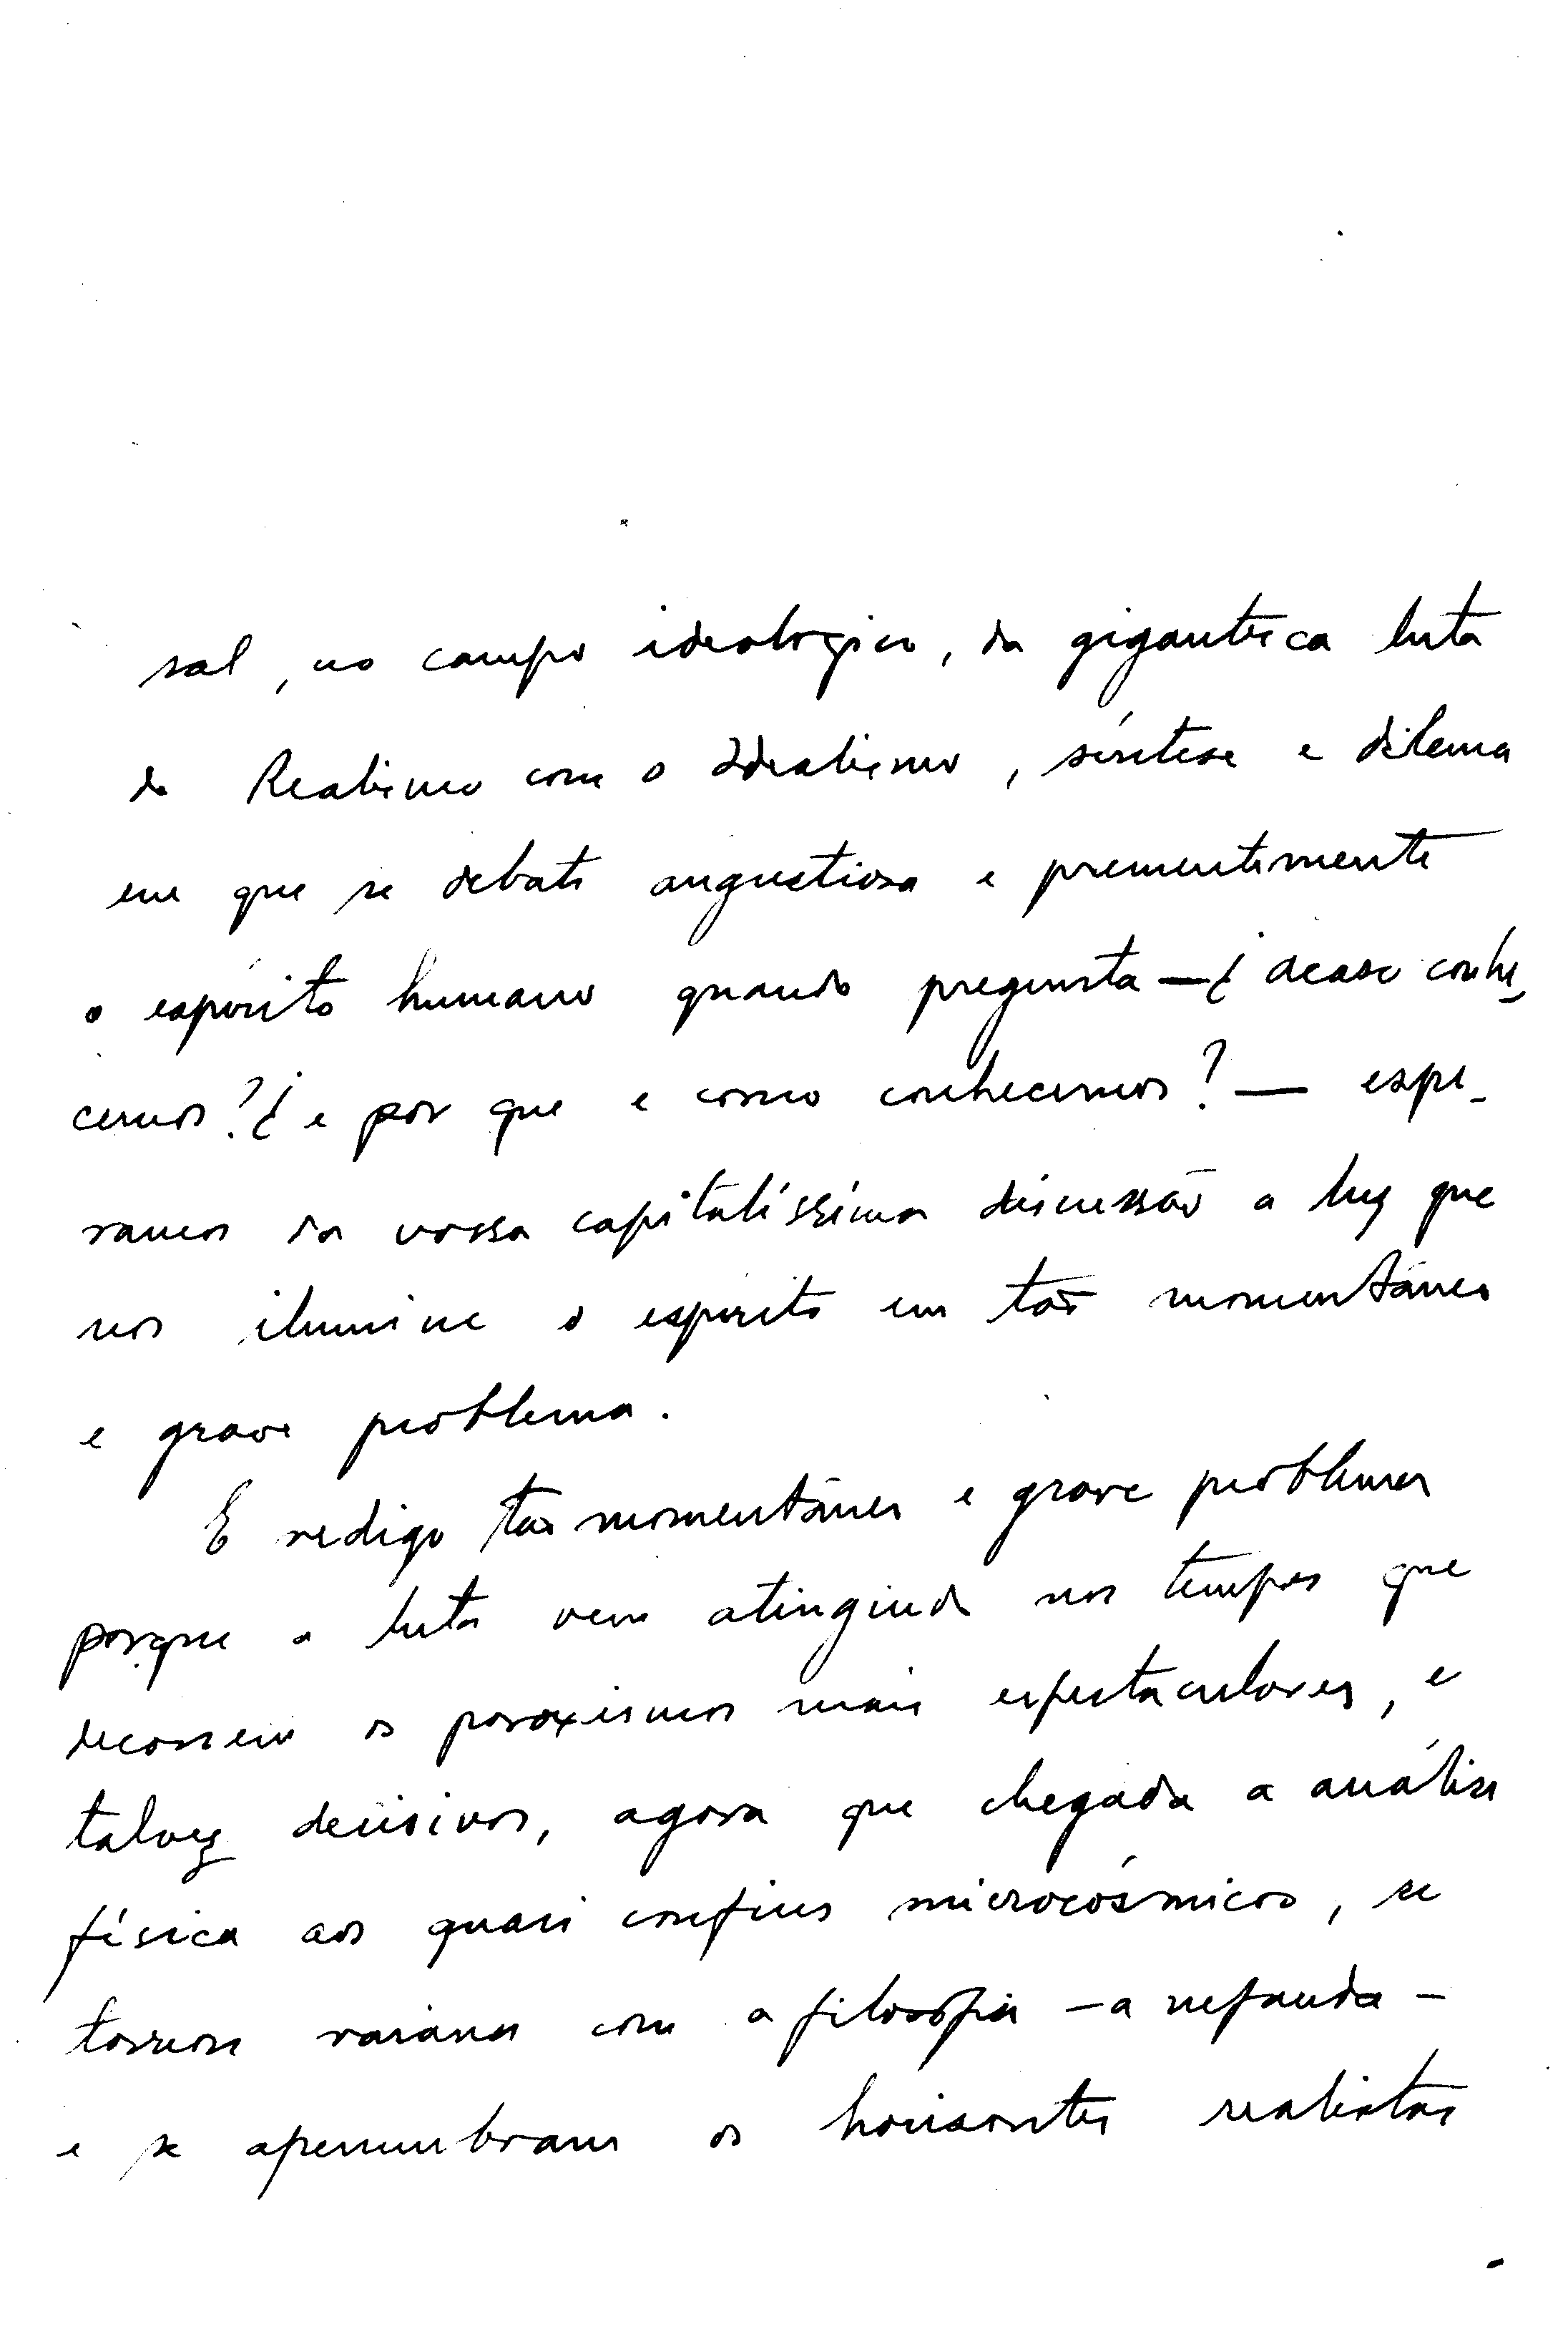 sal, no campo ideologico, da gigantesca luta
do Realismo com o Idealismo, síntese e dilema
em que se debate angustiosa e prementemente
o espírito humano quando pregunta — ¿ acaso conhe_
cemos? ¿ e por que e como conhecemos? — espe_
ramos da vossa capitalíssima discussão a luz que
nos ilumine o espirito em tão momentâneo
e grave problema.
E redigo tão momentâneo e grave problema
porque a luta vem atingindo nos tempos que
decorrem os paroxismos mais espectaculares, e
talvez decisivos, agora que chegada a análise
física aos quasi confins microcósmicos, se
com a filosofia — a nefanda —
e se apenumbram os horisontes realistas